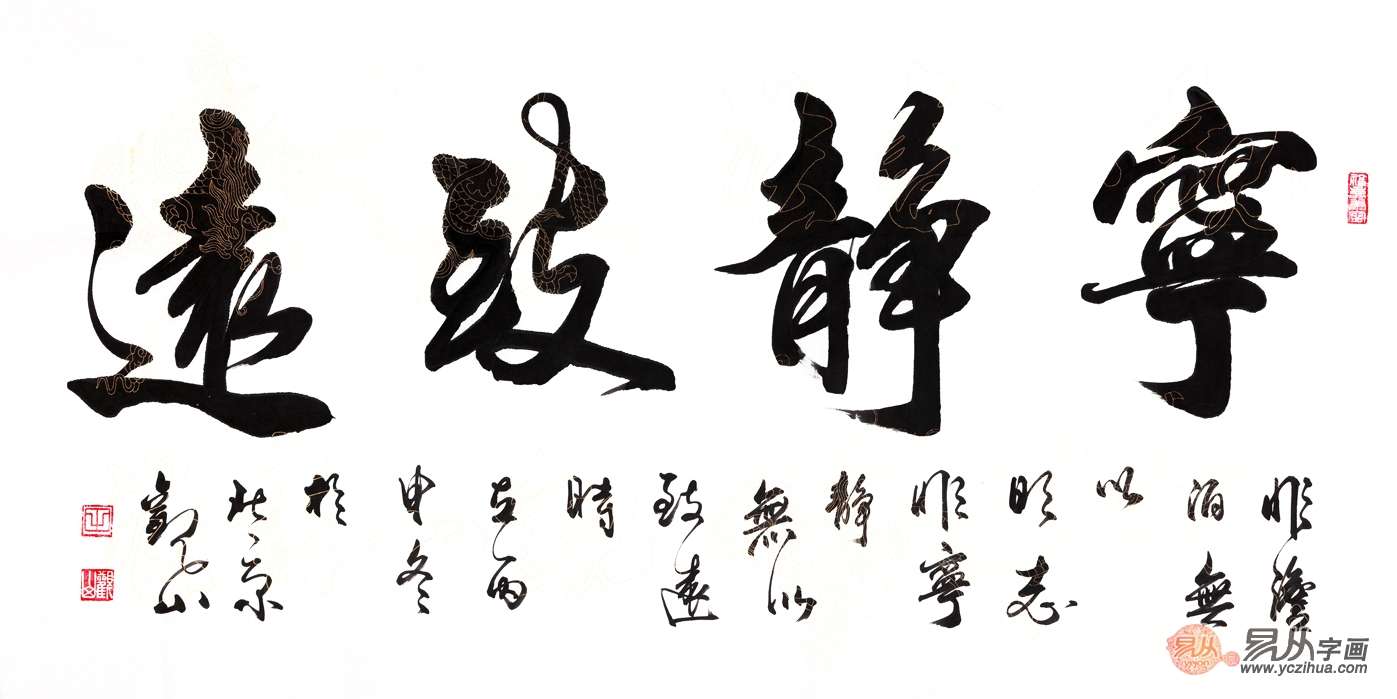 寧靜致遠
非澹
泊無
以
明志
非寧
靜
無以
致遠
時
在丙
申冬
於
北京
山
易从字画
www.yczihua.com